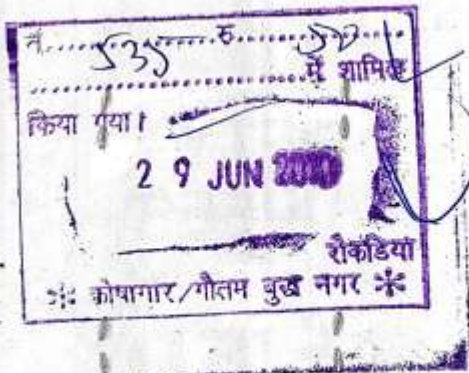 नं. 535 रु. 50
में शामिल
किया गया।
29 JUN
रोकडिया
कोषागार/गौतम बुद्ध नगर